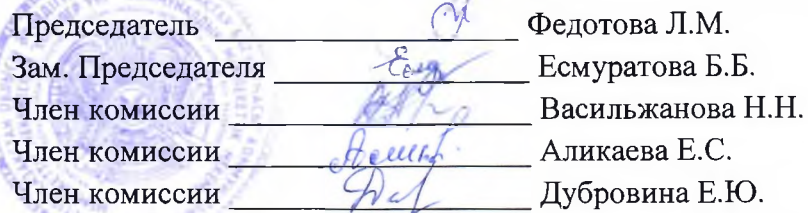 Председатель Федотова Л.М.
Зам. Председателя Есмуратова Б.Б.
Член комиссии Васильжанова Н.Н.
Член комиссии Аликаева Е.С.
Член комиссии Дубровина Е.Ю.